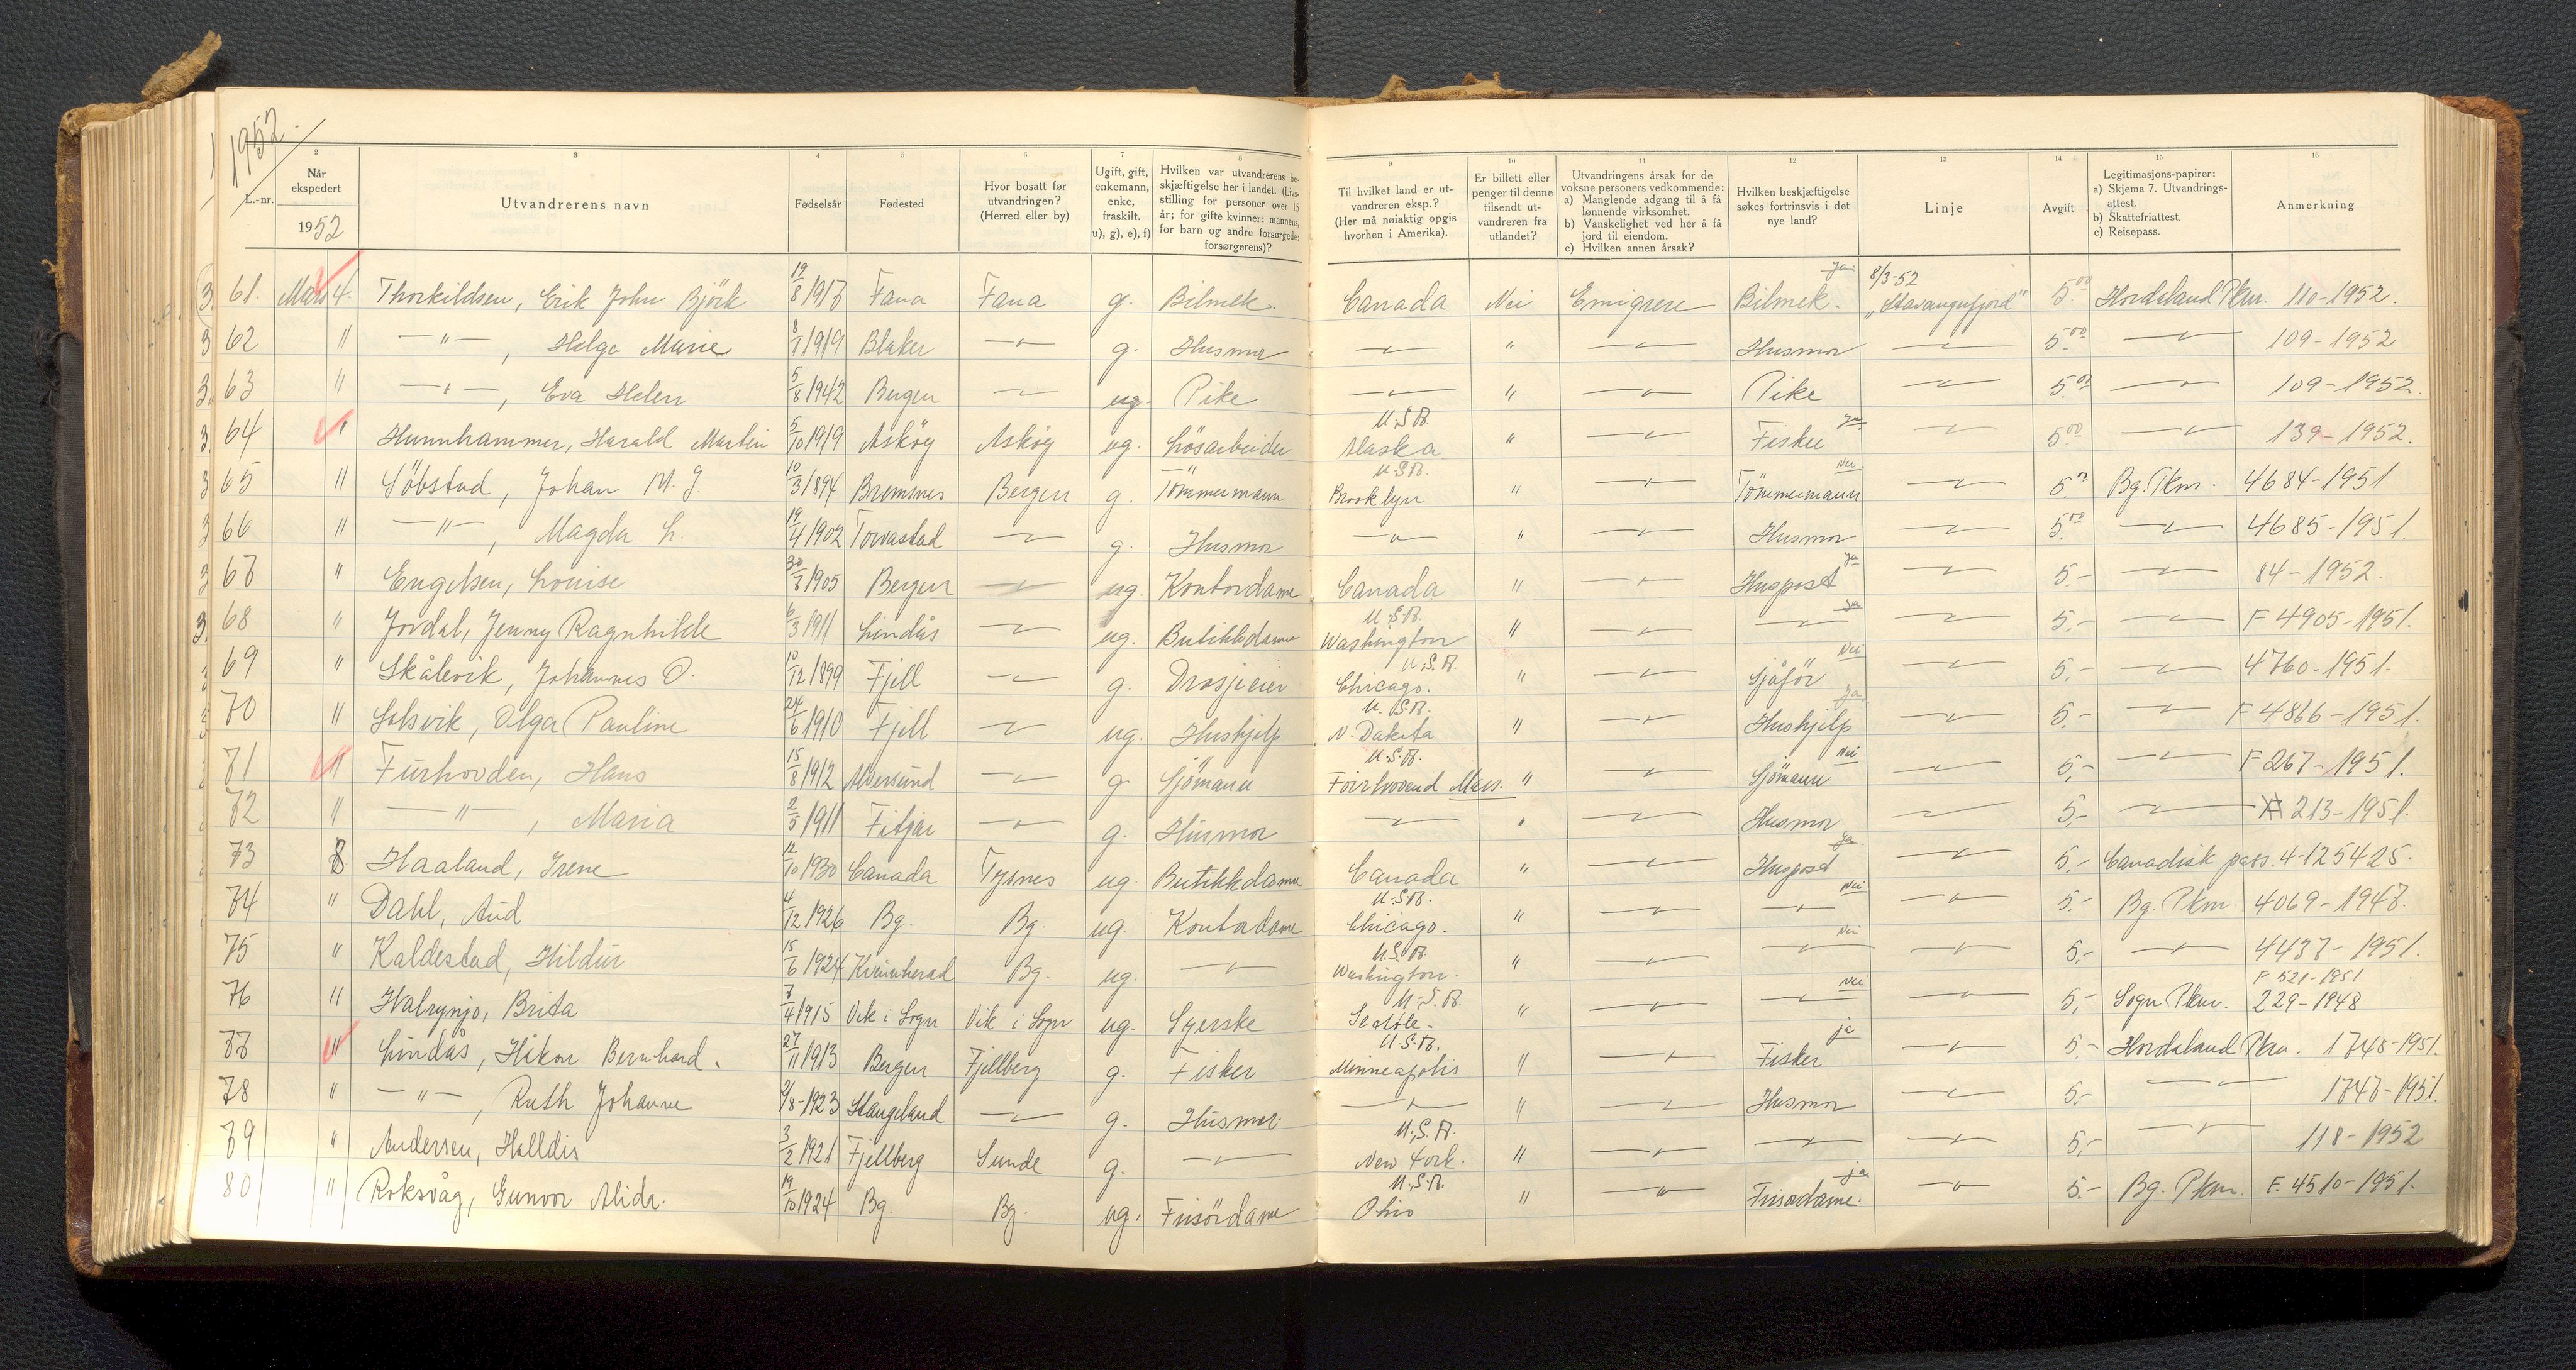 1952.
L.-nr.
2 Når ekspedert 1952
3 Utvandrerens navn
4 Fødselsår
5 Fødested
6 Hvor bosatt før utvandringen? (Herred eller by)
7 Ugift, gift, enkemann, enke, fraskilt. u), g), e), f)
8 Hvilken var utvandrerens beskjæftigelse her i landet. (Livsstilling for personer over 15 år; for gifte kvinner: mannens, for barn og andre forsørgede: forsørgerens)?
9 Til hvilket land er utvandreren eksp.? (Her må nøiaktig opgis hvorhen i Amerika).
10 Er billett eller penger til denne tilsendt utvandreren fra utlandet?
11 Utvandringens årsak for de voksne personers vedkommende: a) Manglende adgang til å få lønnende virksomhet. b) Vanskelighet ved her å få jord til eiendom. c) Hvilken annen årsak?
12 Hvilken beskjæftigelse søkes fortrinsvis i det nye land?
13 Linje
14 Avgift
15 Legitimasjons-papirer: a) Skjema 7. Utvandringsattest. b) Skattefriattest. c) Reisepass.
16 Anmerkning
3 61. Mars 4. Thorkildsen, Erik John Björk 19/8 1917 Fana Fana g. Bilmek. Canada Nei Emigrere Bilmek. ja 8/3-52 "Stavangerfjord" 5.00 Hordaland Pkm. 110-1952.
3 62 " —"—, Helga Marie 8/1 1919 Blaker —"— g. Husmor —"— " —"— Husmor —"— 5.00 —"— 109-1952
3. 63 " —"—, Eva Helen 5/8 1942 Bergen —"— ug. Pike —"— " —"— Pike —"— 5.00 —"— 109-1952.
3. 64 " Hunnhammer, Harald Martin 5/10 1919 Askøy Askøy ug. Løsarbeider U.S.A. Alaska " —"— Fisker ja —"— 5.00 —"— 139-1952.
3 65 " Söbstad, Johan M. J. 10/3 1894 Bremsnes Bergen g. Tømmermann U.S.A. Brooklyn " —"— Tømmermann Nei —"— 5.00 Bg. Pkm. 4684-1951
3 66 " —"—, Magda L. 19/4 1902 Torvastad —"— g. Husmor —"— " —"— Husmor —"— 5.00 —"— 4685-1951.
3 67 " Engelsen, Louise 30/8 1905 Bergen —"— ug. Kontordame Canada " —"— Huspost ja —"— 5.- —"— 84-1952.
3. 68 " Jordal, Jenny Ragnhilde 6/3 1911 Lindås —"— ug. Butikkdame U.S.A. Washington " —"— —"— ja —"— 5.- —"— F 4905-1951.
3 69 " Skålevik, Johannes O. 10/12 1899 Fjell —"— g. Drosjeeier U.S.A. Chicago. " —"— Sjåfør Nei —"— 5.- —"— 4760-1951.
3 70 " Solsvik, Olga Pauline 24/6 1910 Fjell —"— ug. Hushjelp U.S.A. N. Dakota " —"— Hushjelp ja —"— 5.- —"— F 4866-1951.
71 " Furhovden, Hans 15/8 1912 —"— g Sjömann U.S.A. Foirhovend Mass. " —"— Sjömann Nei —"— 5,- —"— F 267-1951.
72 " —"—, Maria 2/5 1911 Fitjar —"— g. Husmor —"— " —"— Husmor —"— 5,- —"— 213-1951.
73 8 Haaland, Irene 12/10 1930 Canada Tysnes ug. Butikkdame Canada " —"— Huspost ja —"— 5.- Canadisk pass. 4-125425.
74 " Dahl, Aud 4/12 1926 Bg. Bg. ug. Kontordame U.S.A. Chicago. " —"— —"— Nei —"— 5.- Bg. Pkm 4069-1947.
75 " Kaldestad, Hildur 15/6 1924 Kvinnherad Bg. ug. —"— U.S.A. Washington. " —"— —"— Nei —"— 5,- —"— 4437-1951.
76 " Halrynjo, Brita 7/4 1915 Vik i Sogn Vik i Sogn ug. Syerske U.S.A. Seattle. " —"— —"— Nei —"— 5,- Sogn Pkm. F 521-1951 229-1948
77 " Lindås, Håkon Bernhard. 27/11 1913 Bergen Fjellberg g. Fisker U.S.A. Minneapolis " —"— Fisker ja —"— 5,- Hordaland Pkm. 1748-1951.
78 " —"—, Ruth Johanne 9/8-1923 Stangeland —"— g. Husmor —"— " —"— Husmor —"— 5,- —"— 1747-1951.
79 " Andersen, Halldis 3/2 1921 Fjellberg Sunde g. —"— U.S.A. New York. " —"— —"— —"— 5,- —"— 118-1952
80 " Roksvåg, Gunvor Alida. 19/10 1924 Bg. Bg. ug. Frisördame U.S.A. Ohio " —"— Frisördame. ja —"— 5.- Bg. Pkm. F. 4510-1951.